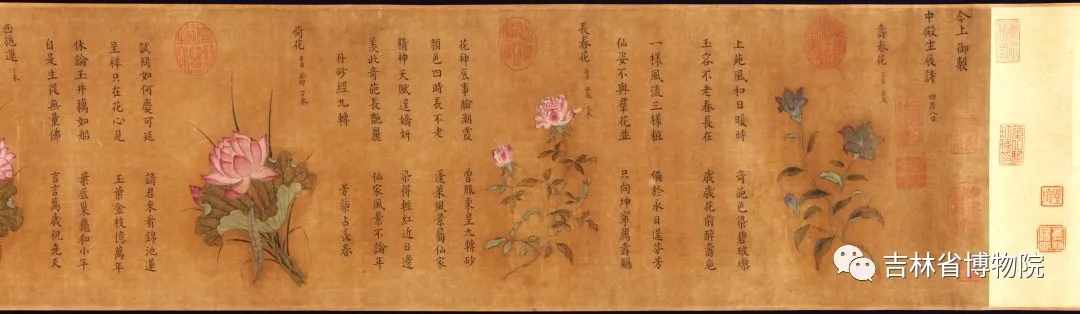 今上御製
中殿生辰詩 四月八日
壽春花
上苑風和日暖時 奇葩色染碧玻瓈
玉容不老春長在 歲歲花前醉壽卮
一樣風流三樣粧 偏於永日逞芬芳
仙姿不與群花並 只向坤寧薦壽觴
長春花
花神底事臉潮霞 曾服東皇九轉砂
顏色四時長不老 蓬萊風景屬仙家
精神天賦逞嬌妍 染得輕紅近日邊
羨此奇葩長艷麗 仙家風景不論年
丹砂經九轉 芳蕐占長春
荷花
試問如何慶可延 請君來看錦池蓮
呈祥只在花心見 玉葉金枝億萬年
休論玉井藕如船 葉底巢龜和小年
自是生從無量佛 言言萬歲祝堯天
西施蓮
吉林省博物院